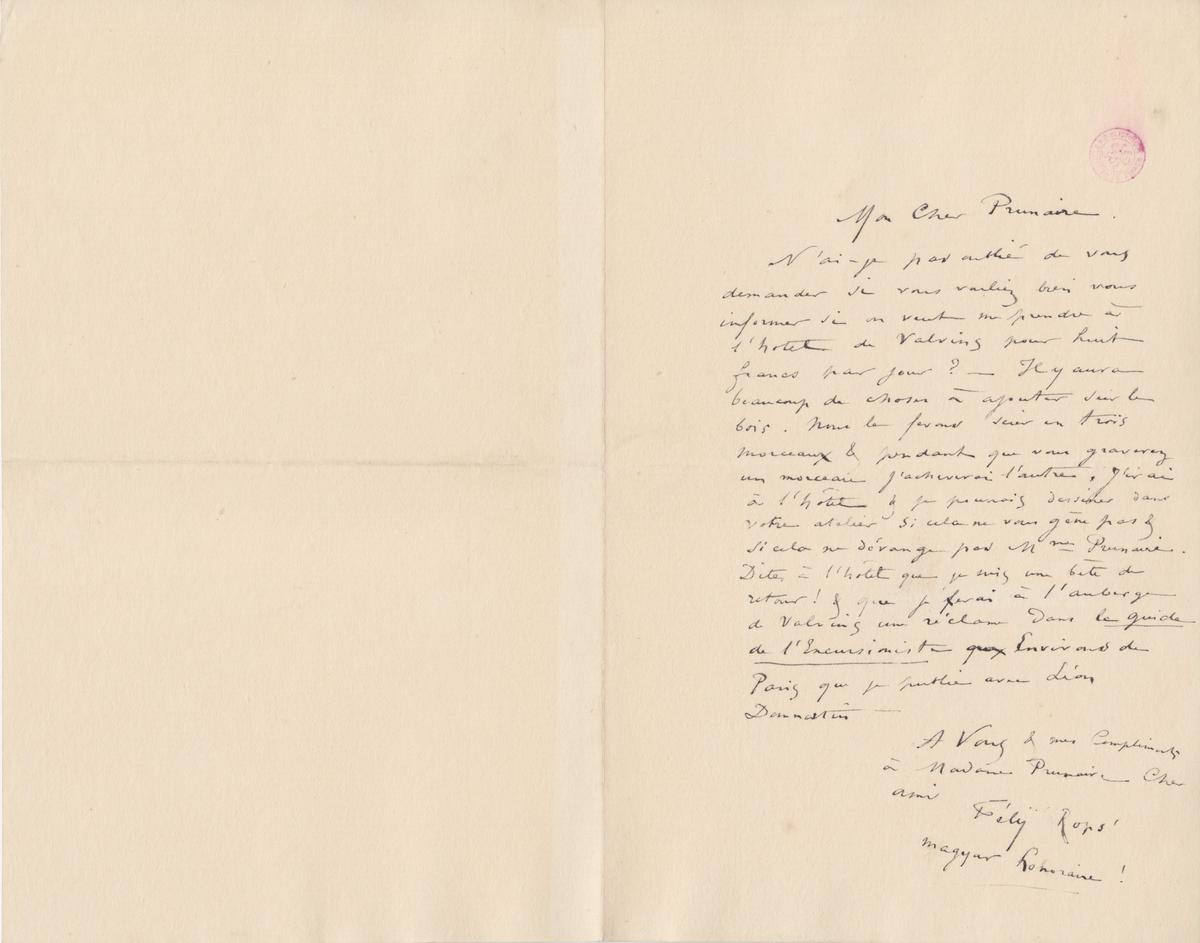 Mon Cher Prunaire.
N'ai-je pas oublié de vous
demander si vous vouliez bien vous
informer si on veut me prendre à
l'hôtel de Valvins pour huit
francs par jour ? — Il y aura
beaucoup de choses à ajouter sur le
bois. Nous le ferons scier en trois
morceaux & pendant que vous graverez
un morceau j'acheverai l'autre. J'irai
à l'hôtel & je pourrais dessiner dans
votre atelier si cela ne vous gêne pas &
si cela ne dérange pas Mme Prunaire.
Dites à l'hôtel que je suis une bête de
retour ! & que je ferai à l'auberge
de Valvins une réclame dans le guide
de l'Excursioniste Environs de
Paris que je publie avec Léon
Dommartin —
A Vous & mes Compliments
à Madame Prunaire Cher
ami
Fély Rops
magyar honoraire !